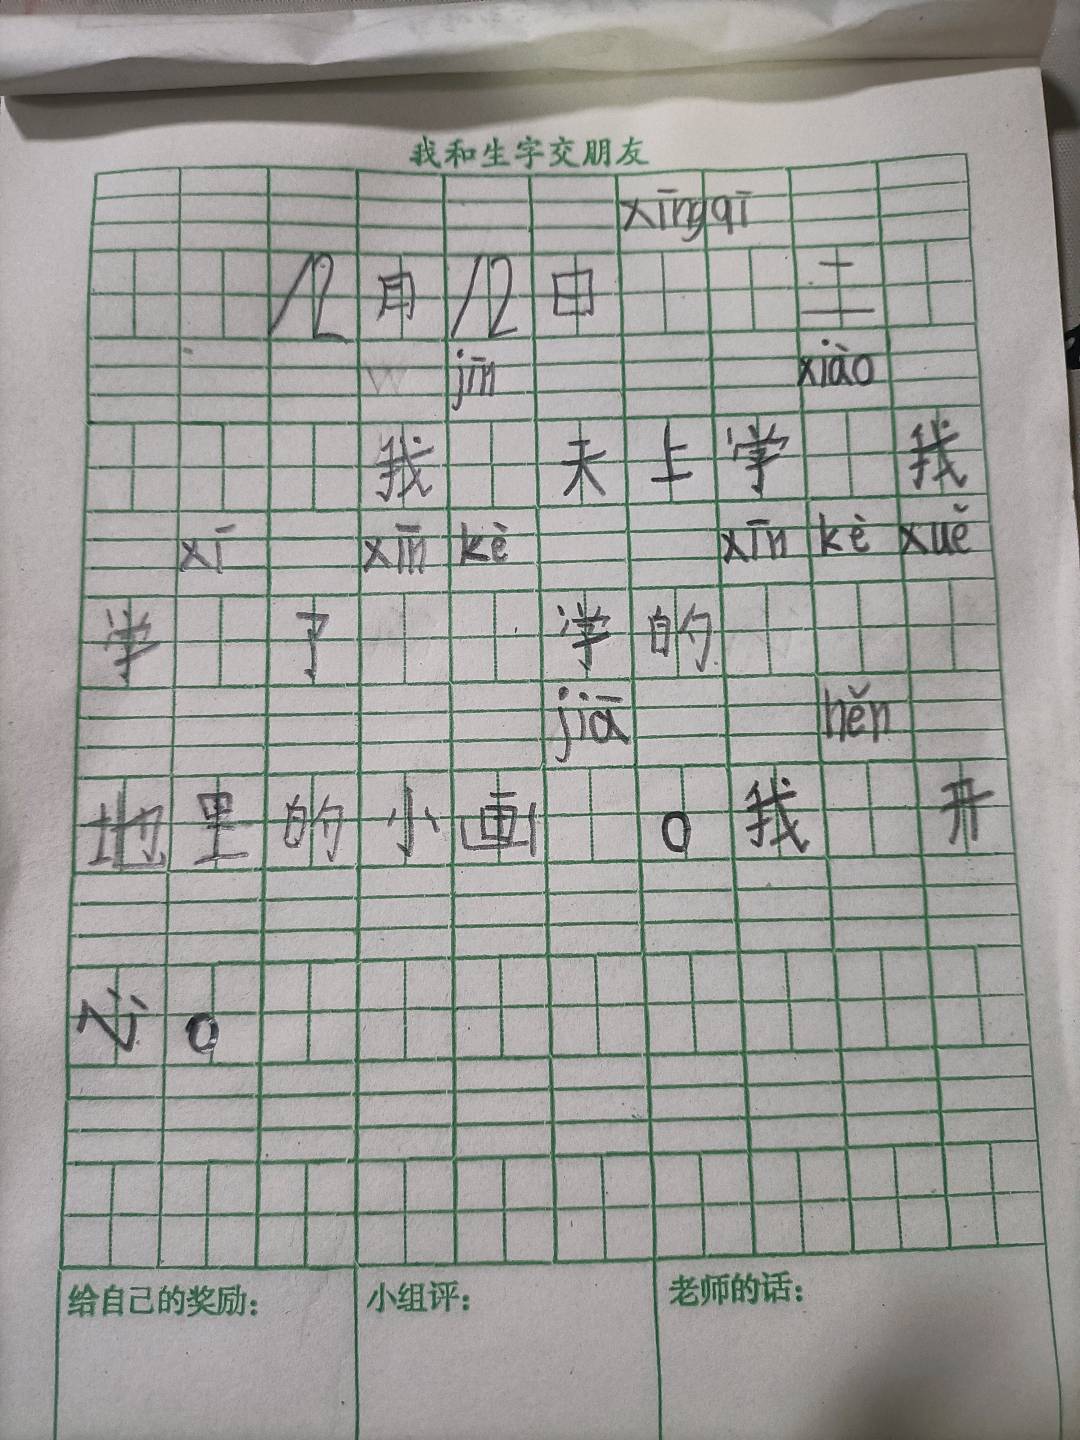 我和生字交朋友
xīngqī
12月12日 三
jīn xiào
我 天上学 我
xī xīn kè xīn kè xuě
学 了 学的
jiā hěn
地里的小画 。我 开
心。
给自己的奖励: 小组评: 老师的话: